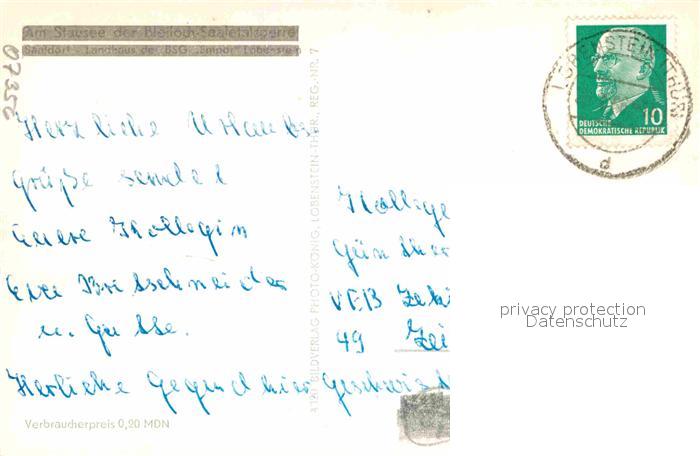 Am Stausee der Bleiloch-Saaletalsperre
Saaldorf - Landhaus der BSG „Empor" Lobenstein
07356
Herzliche Urlaubs
grüße sendet
Eure Kollegin
Eva Bretschneider
u. Gatte.
Herliche Gegend hier
Verbraucherpreis 0,20 MDN
BILDVERLAG PHOTO-KÖNIG, LOBENSTEIN-THÜR. REG.-NR. 7
LOBENSTEIN (THÜR)
d
10
DEUTSCHE
DEMOKRATISCHE REPUBLIK
Kollege
Günther
VEB
49 Zei
privacy protection
Datenschutz